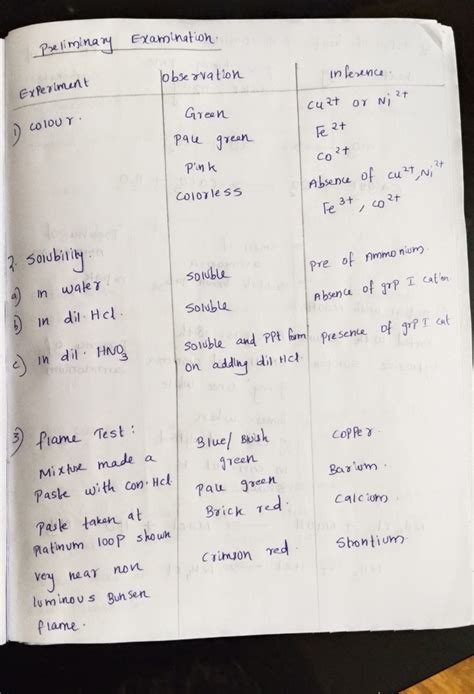 Preliminary Examination.
Experiment | Observation | Inference.
1) Colour. | Green | Cu²⁺ or Ni²⁺
Pale green | Fe²⁺
Pink | Co²⁺
Colorless | Absence of Cu²⁺, Ni²⁺
Fe³⁺, Co²⁺
2. Solubility.
a) In water. | Soluble | Pre of Ammonium.
b) In dil. Hcl. | Soluble | Absence of grp I cation
c) In dil. HNO₃ | Soluble and PPt form | Presence of grp I cat
on adding dil Hcl.
3) Flame Test: | Blue/ Bluish | Copper.
Mixture made a | green | Barium.
Paste with con. Hcl | Pale green | Calcium
Paste taken at | Brick red. | Strontium.
Platinum loop shown | Crimson red.
very near non
luminous Bunsen
flame.